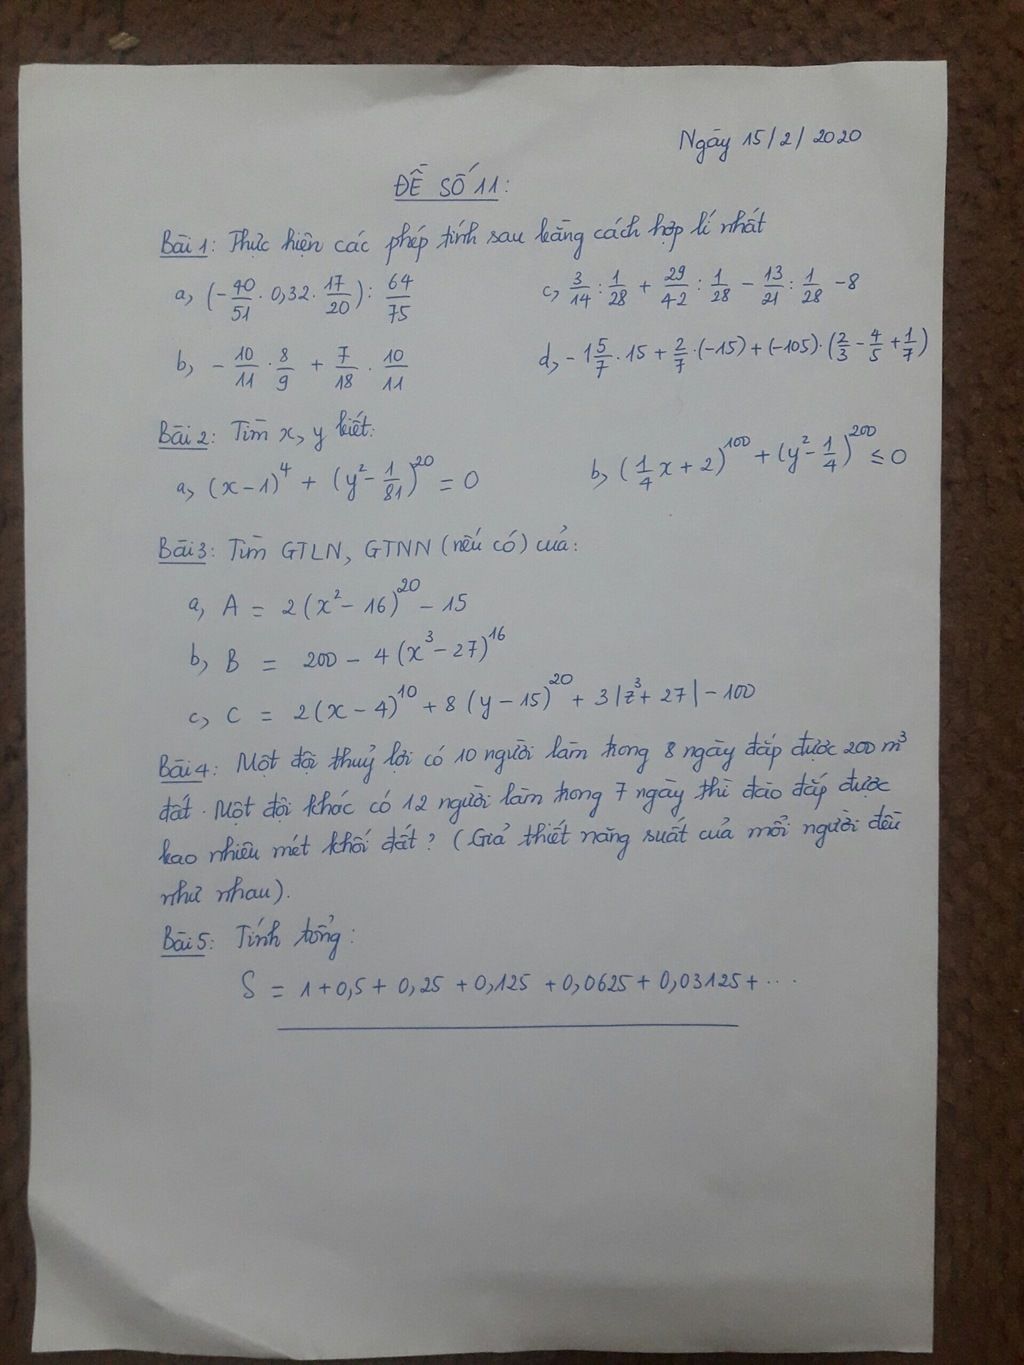 Ngày 15/2/2020
ĐỀ SỐ 11:
Bài 1: Thực hiện các phép tính sau bằng cách hợp lí nhất
a, (-40/51 . 0,32 . 17/20) : 64/75
c, 3/14 : 1/28 + 29/42 : 1/28 - 13/21 : 1/28 - 8
b, -10/11 . 8/9 + 7/18 . 10/11
d, -1 5/7 . 15 + 2/7 . (-15) + (-105) . (2/3 - 4/5 + 1/7)
Bài 2: Tìm x, y biết:
a, (x-1)^4 + (y^2 - 1/81)^20 = 0
b, (1/4 x + 2)^100 + (y^2 - 1/4)^200 ≤ 0
Bài 3: Tìm GTLN, GTNN (nếu có) của:
a, A = 2(x^2 - 16)^20 - 15
b, B = 200 - 4(x^3 - 27)^16
c, C = 2(x - 4)^10 + 8(y - 15)^20 + 3|z^3 + 27| - 100
Bài 4: Một đội thuỷ lợi có 10 người làm trong 8 ngày đắp được 200 m³
đất. Một đội khác có 12 người làm trong 7 ngày thì đào đắp được
bao nhiêu mét khối đất? (Giả thiết năng suất của mổi người đều
như nhau).
Bài 5: Tính tổng:
S = 1 + 0,5 + 0,25 + 0,125 + 0,0625 + 0,03125 + ...